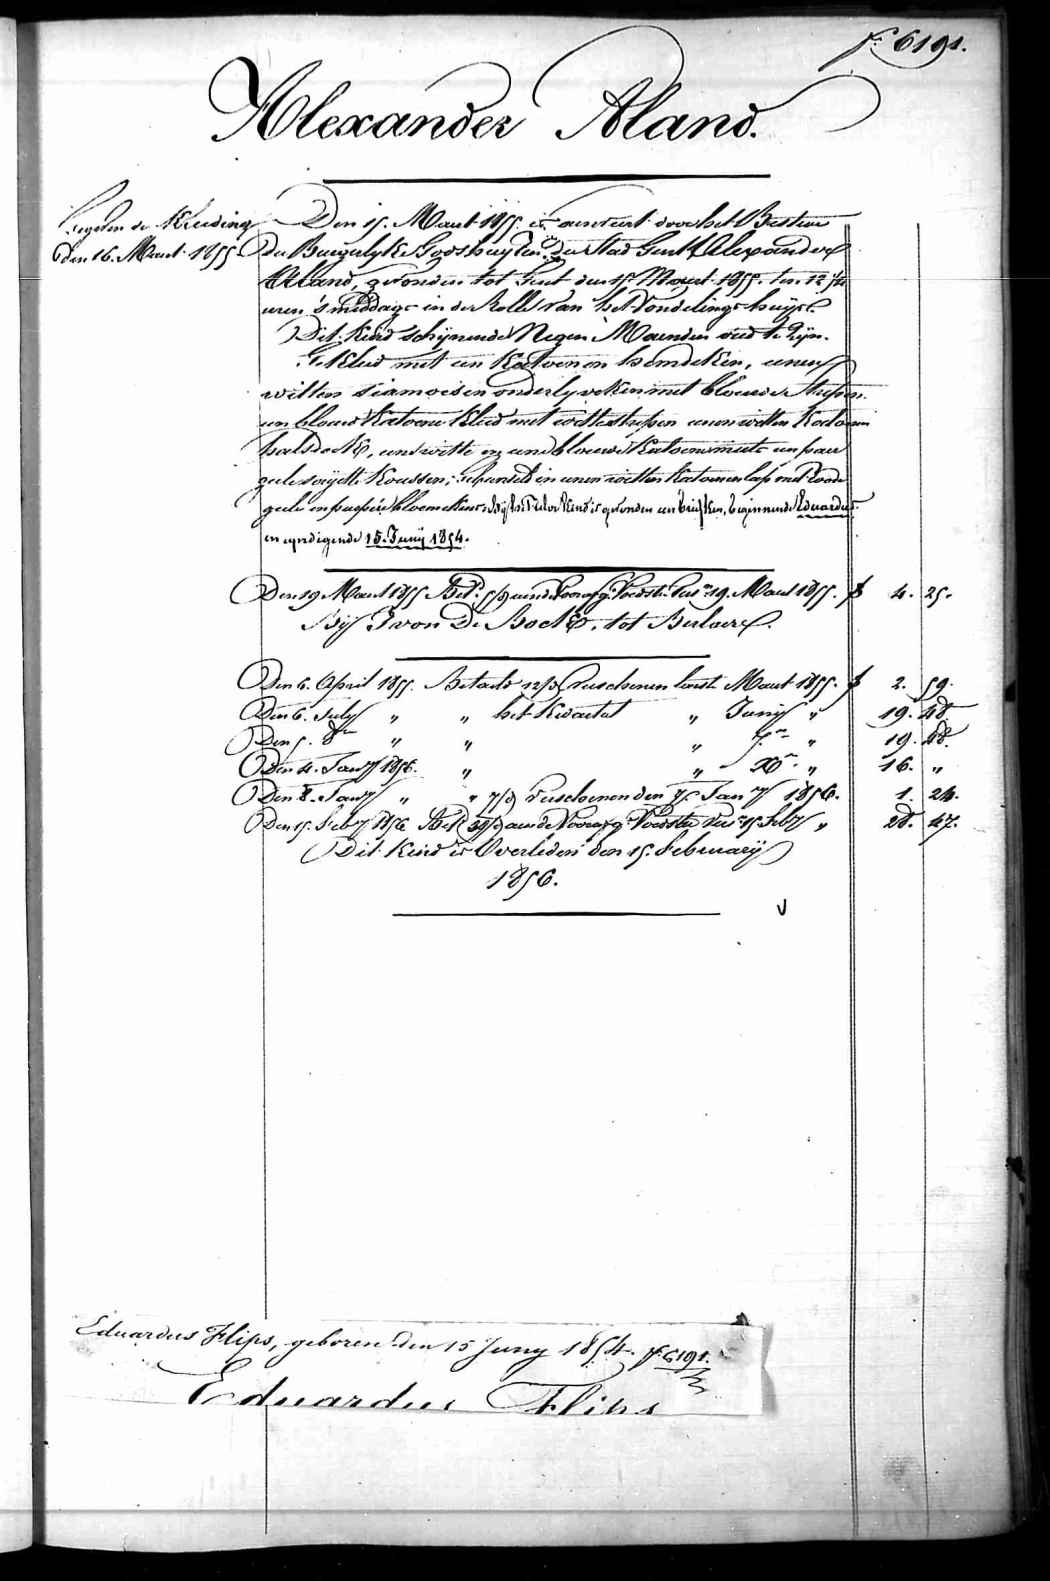 f° 6191.
Alexander Aland.
Gegeven de Kleeding
den 16. Maert 1855
Den 15. Maert 1855. is aenveert door het Bestier
der Burgerlyke Godshuyzen der Stad Gent Alexander
Aland, gevonden tot Gent den 15 Maert 1855. ten 12 1/2
uren 's middags in de Rolle van het Vondelings huys.
Dit Kind schynende Negen Maenden oud te zyn.
Gekleed met een Katoenen hemdeken, eenen
witten siamoisen onderlyveken met blauwe strepen.
een blauw Katoene kleed met witte strepen eenen witten Katoenen
halsdoek, eene witte en eene blauwe Katoene muts een paer
geele sayette Koussen;          in eenen witten katoenen lap met Roode
geele en       bloemekens. By het zelve Kind is gevonden een briefken, beginnende Eduardus
en eyndigende 15. Juny 1854.
Den 19 Maert 1855                     19. Maert 1855. f 4. 25.
By Ivon De Bock, tot Berlaere.
Den 6. April 1855. Betaelt 12/d verschenen laest Maert 1855. f 2. 59.
Den 6. July " " het Kwartael " Juny " 19. 48.
Den 5. 8er " " " 7er " 19. 48.
Den 4. Jany 1856. " " Xr " 16. "
Den 8. Jany " " 7/d verschenen den 7. Jany 1856. 1. 24.
Den 15. Feby 1856                     15 Feby " 28. 47.
Dit Kind is Overleden den 15. February
1856.
Eduardus Flips, geboren den 15 Juny 1854. f° 6191.
Eduardus Flips